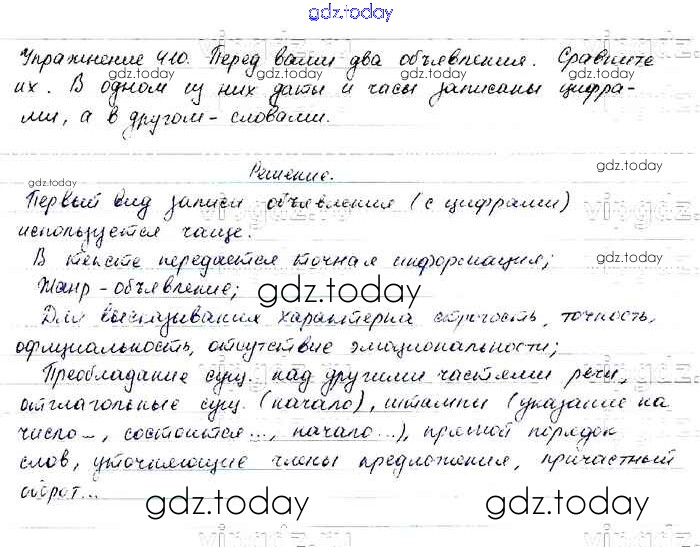 gdz.today
Упражнение 410. Перед вами два объявления. Сравните
gdz.today gdz.today gdz.today
их. В одном из них даты и часы записаны цифра-
ми, а в другом - словами.
Решение.
gdz.today gdz.today
Первый вид записи объявления (с цифрами)
используется чаще.
В тексте передается точная информация;
Жанр - объявление;
gdz.today
Для высказывания характерна строгость, точность,
официальность, отсутствие эмоциональности;
Преобладание сущ. над другими частями речи,
отглагольные сущ. (начало), штампы (указание на
число -, состоится..., начало...), прямой порядок
слов, уточняющие члены предложения, причастный
оборот...
gdz.today gdz.today